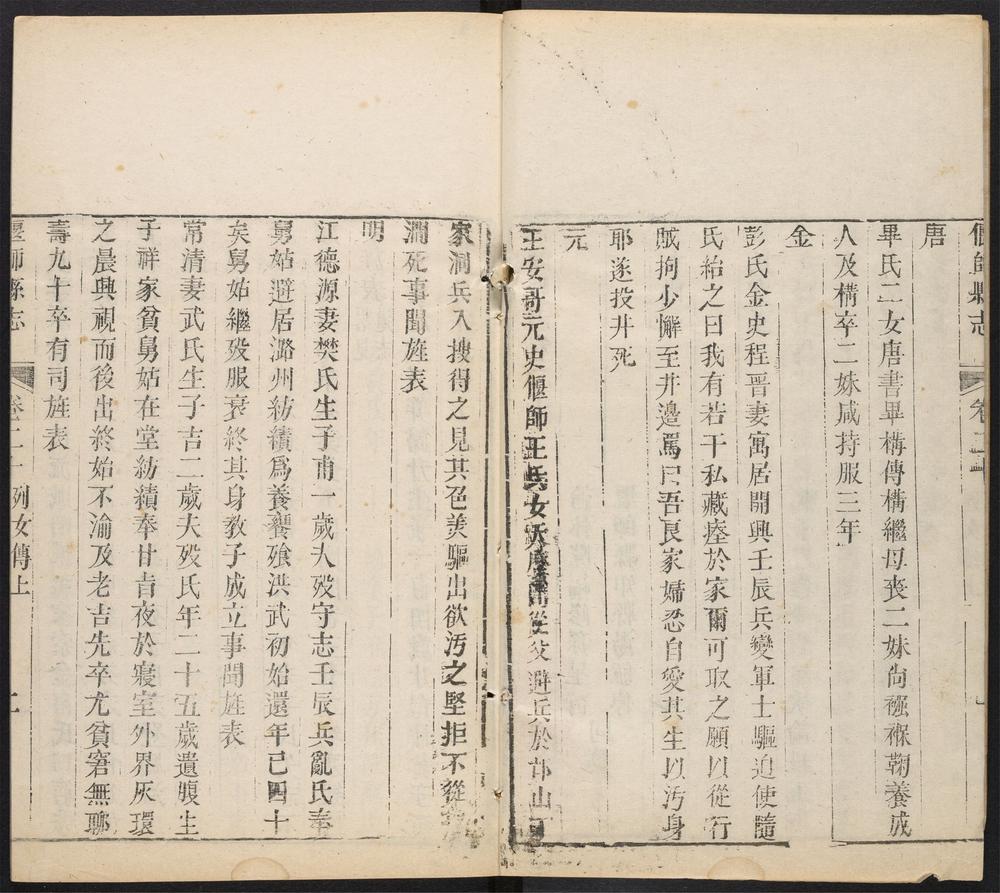 偃師縣志　卷二十
唐
畢氏二女唐書畢構傳構繼母喪二妹尙襁褓鞠養成
人及構卒二妹咸持服三年
金
彭氏金史程晋妻寓居開興壬辰兵變軍士驅迫使隨
氏紿之曰我有若干私藏瘞於家爾可取之願以從行
賊拘少懈至井邊罵曰吾良家婦忍自愛其生以汚身
耶遂投井死
元
王安哥元史偃師王氏女從父避兵於邙山
家洞兵入搜得之見其色美驅出欲汚之堅拒不從
澗死事聞旌表
明
江德源妻樊氏生子甫一歲夫殁守志壬辰兵亂氏奉
舅姑避居潞州紡績爲養饔飧洪武初始還年已四十
矣舅姑繼殁服衰終其身敎子成立事聞旌表
常清妻武氏生子吉二歲夫殁氏年二十五歲遺腹生
子祥家貧舅姑在堂紡績奉甘旨夜於寢室外界灰環
之晨興視而後出終始不渝及老吉先卒尤貧窘無聊
壽九十卒有司旌表
偃師縣志　卷二十　列女傳上　二